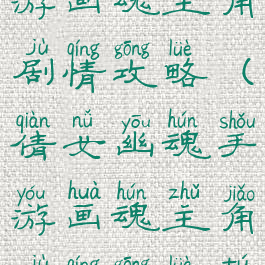 游画魂主角
jù qíng gōng lüè
剧情攻略（
qiàn nǚ yōu hún shǒu
倩女幽魂手
yóu huà hún zhǔ jiǎo
游画魂主角
jù qíng gōng lüè